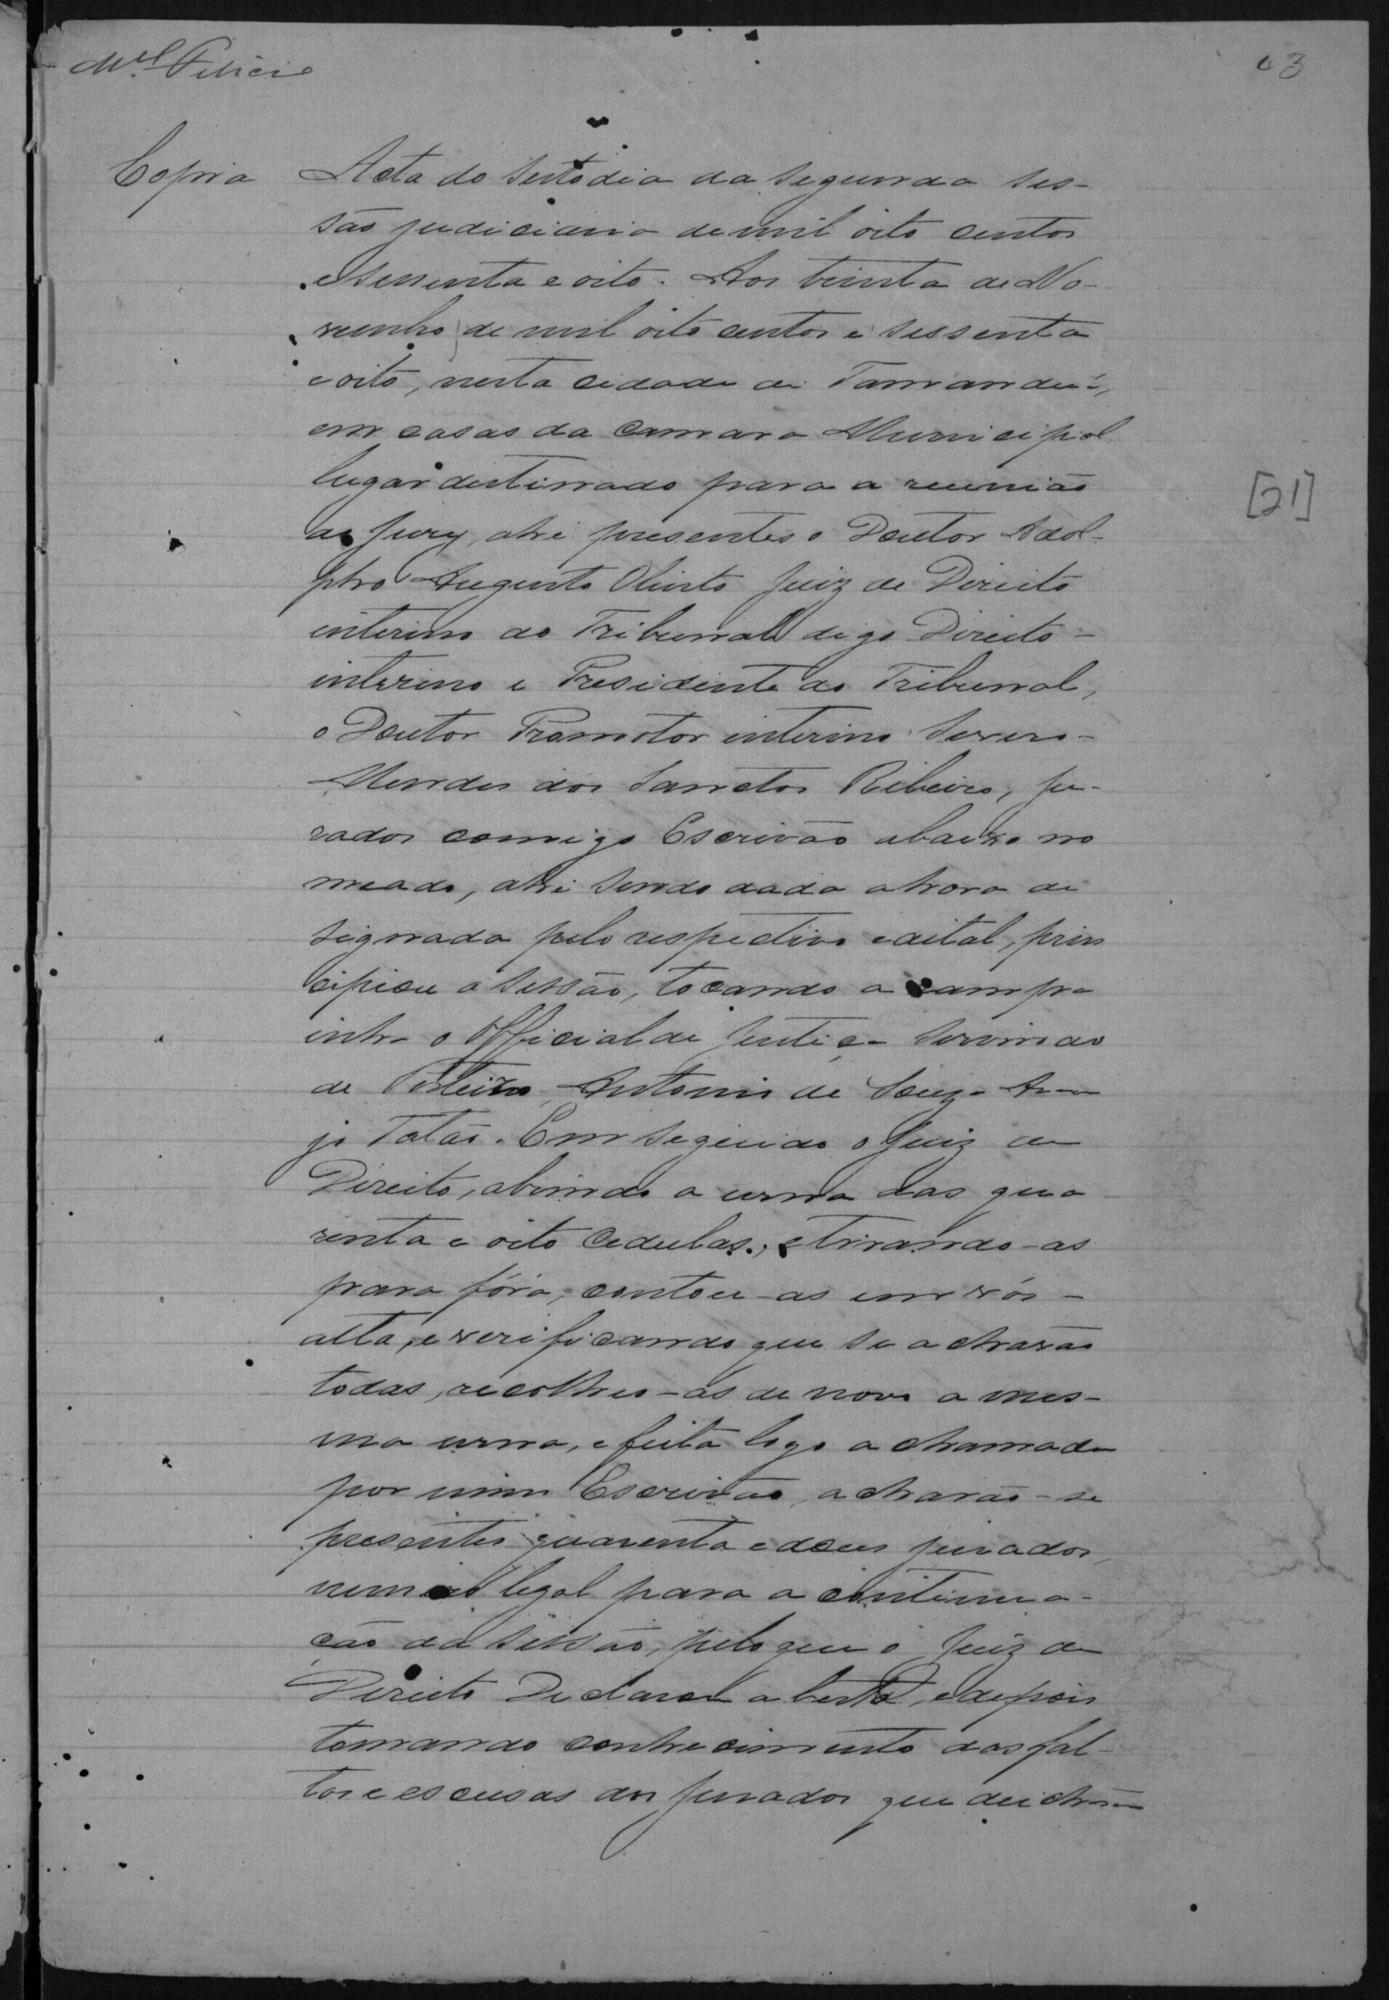 M.el Felicio
03
Copia
Acta do sexto dia da segunda ses-
são judiciaria de mil oito centos
e sessenta e oito. Aos trinta de No-
vembro de mil oito centos e sessenta
e oito, nesta cidade de Tamanduá,
em casas da camara Municipal
lugar destinado para a reunião
do Jury, ahi presentes o Doutor Adol-
pho Augusto Olinto Juiz de Direito
interino do Tribunal digo Direito
interino e Presidente do Tribunal,
o Doutor Promotor interino Severo
Mendes dos Sanctos Ribeiro, ju-
rados comigo Escrivão abaixo no
meado, ahi sendo dada a hora de
signada pelo respectivo edital, prin
cipiou a sessão, tocando a campa
inha o Official de Justiça servindo
de Porteiro Antonio de Souza Arau
jo Tatão. Em seguida o Juiz de
Direito, abrindo a urna das qua
renta e oito cedulas, e tirando-as
para fóra, contou-as em vós
alta, e verificando que se achavão
todas, recolheo-as de novo a mes-
ma urna, e feita logo a chamada
por mim Escrivão, acharão-se
presentes quarenta e dous jurados,
numero legal para a continua-
ção da sessão, pelo que o Juiz de
Direito Declarou aberta, e depois
tomando conhecimento das fal-
tas e escusas dos jurados que deicharão
[21]